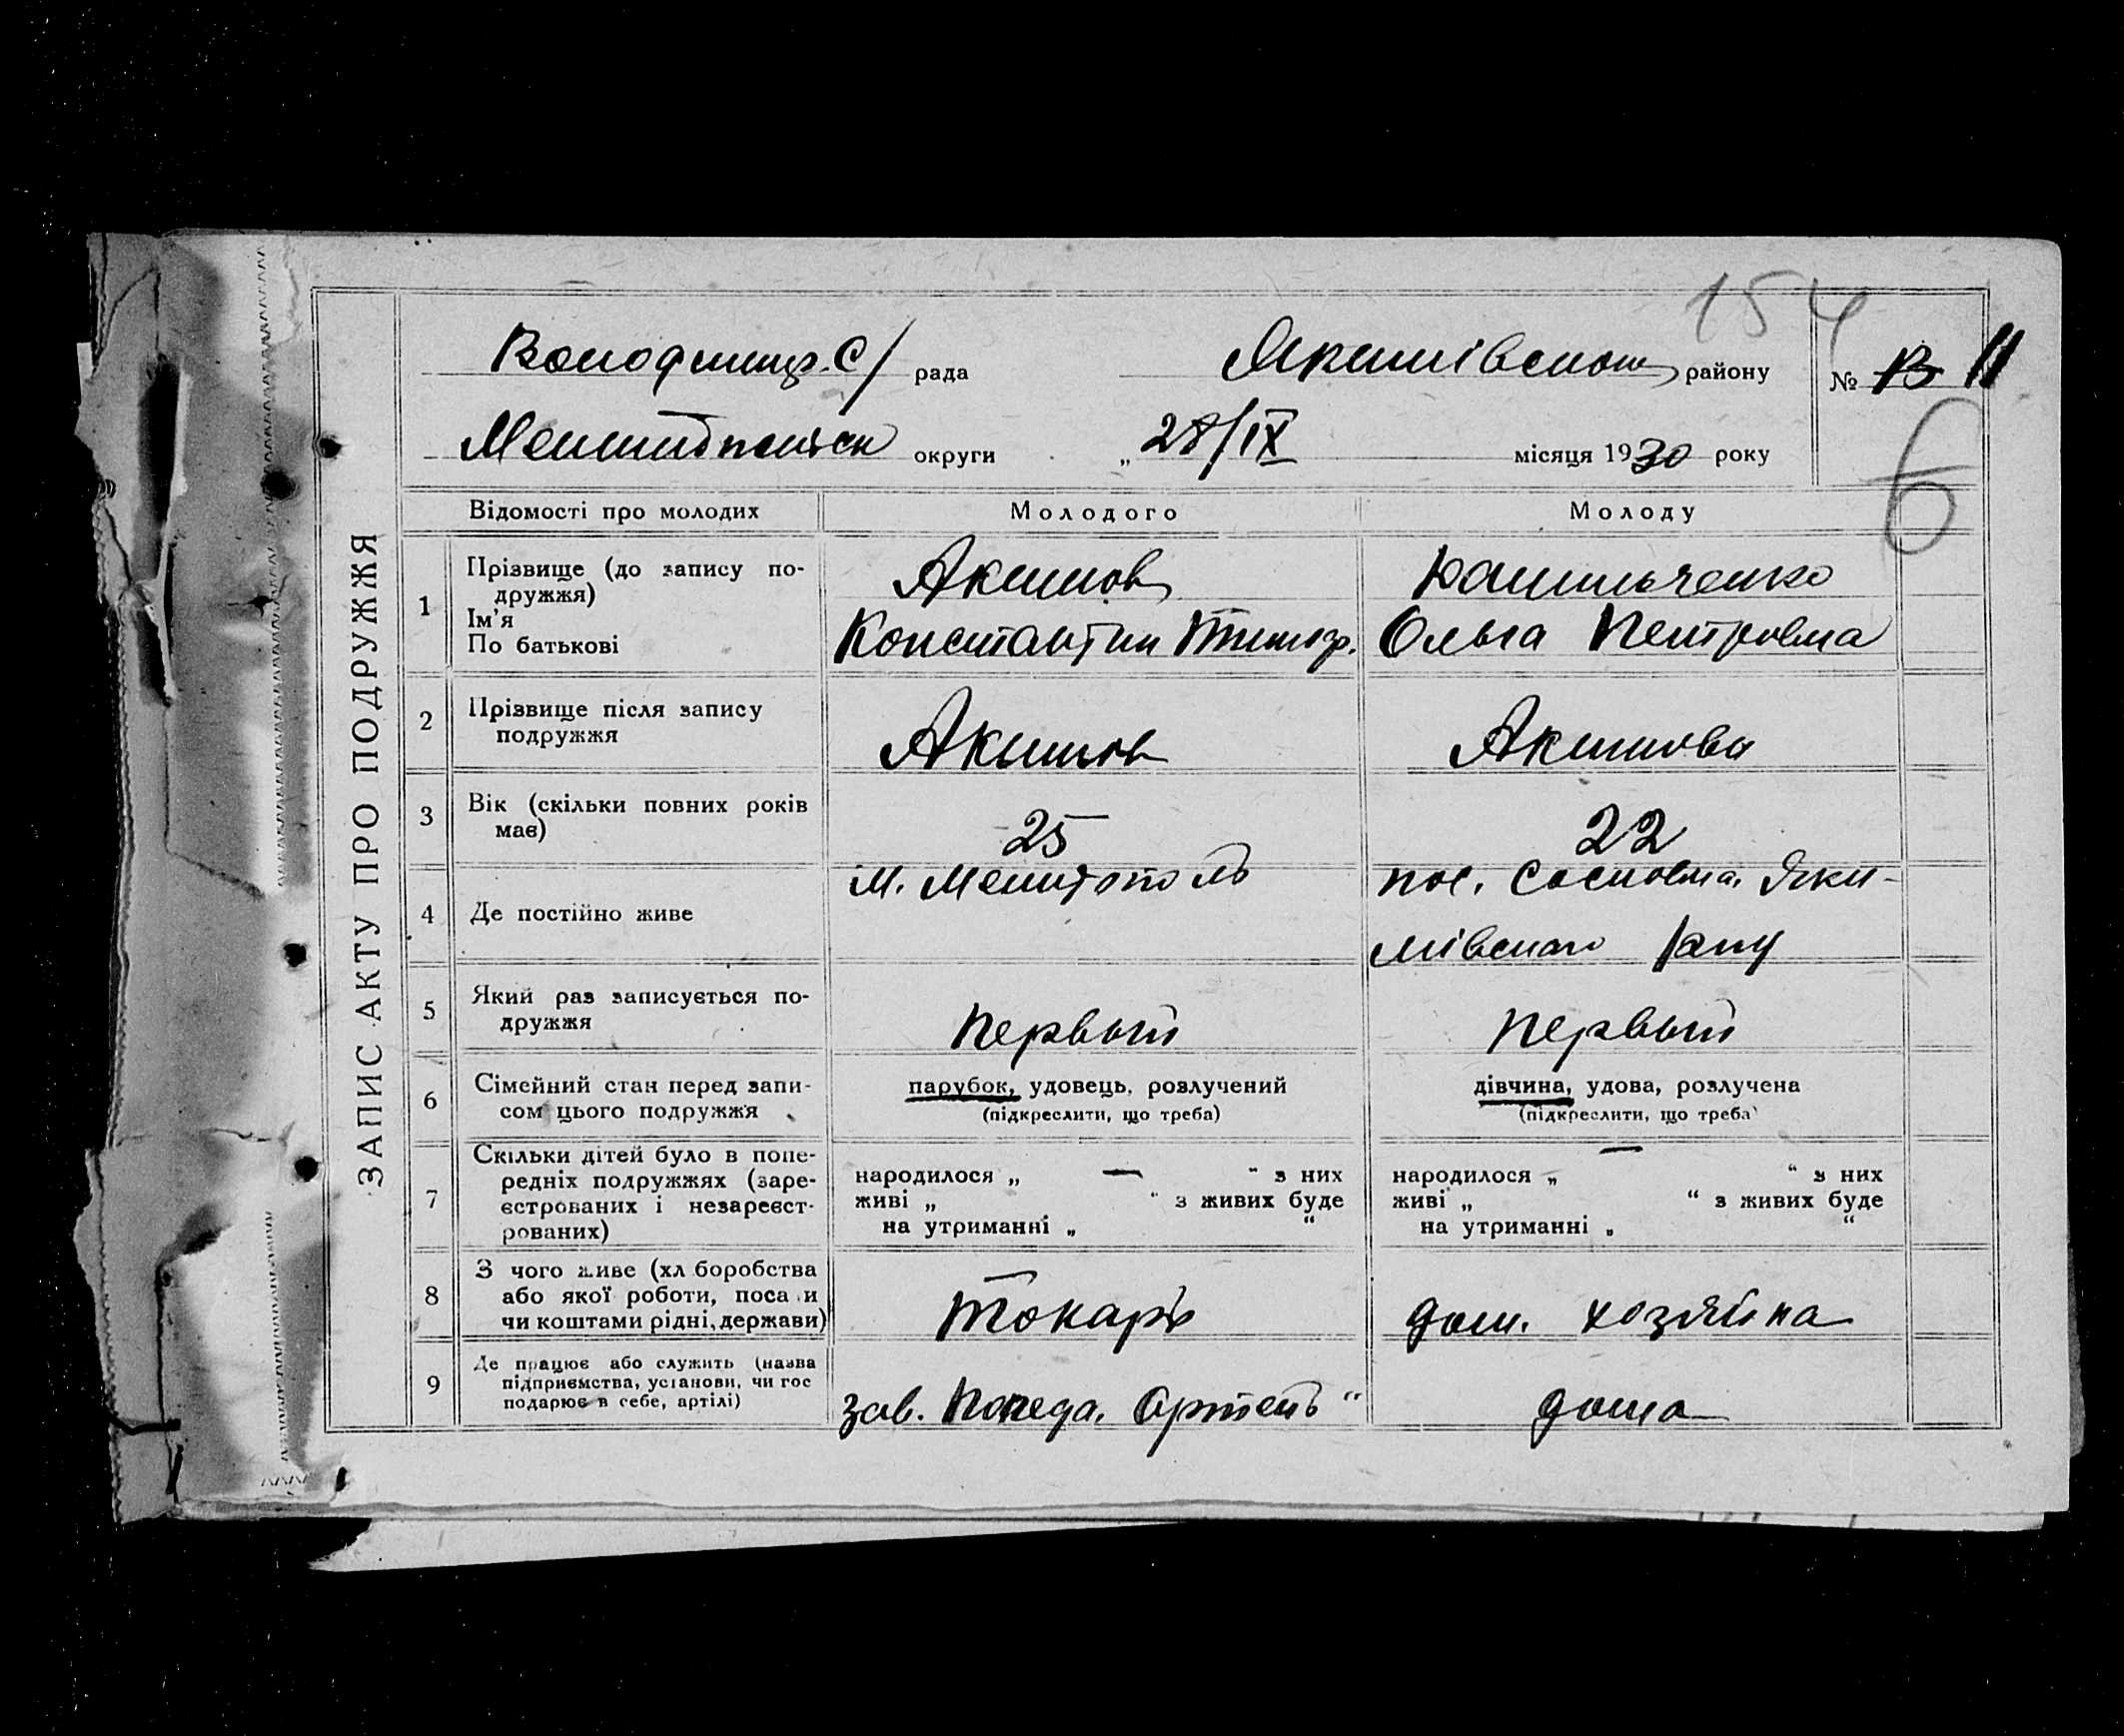 154
Володимир. С/ рада Якимівського району № 13 11
Мелитопольск округи „ 28/IX місяця 1930 року
6
ЗАПИС АКТУ ПРО ПОДРУЖЖЯ
Відомості про молодих Молодого Молоду
1 Прізвище (до запису по-
дружжя)
Ім'я
По батькові
Акимов
Константин
Ольга Петровна
2 Прізвище після запису
подружжя
Акимов Акимова
3 Вік (скільки повних років
має)
25 22
4 Де постійно живе
м. Мелитополь
пос. Сосновка, Яки-
мівского р-ну
5 Який раз записується по-
дружжя
первый первый
6 Сімейний стан перед запи-
сом цього подружжя
парубок, удовець, розлучений
(підкреслити, що треба)
дівчина, удова, розлучена
(підкреслити, що треба)
7 Скільки дітей було в попе-
редніх подружжях (заре-
єстрованих і незареєст-
рованих)
народилося „ — “ з них
живі „ “ з живих буде
на утриманні „ “
—
народилося „ “ з них
живі „ “ з живих буде
на утриманні „ “
8 З чого живе (хліборобства
або якої роботи, посади
чи коштами рідні, держави)
токарь дом. хозяйка
9 Де працює або служить (назва
підприємства, установи, чи гос
подарює в себе, артілі)
зав. Артель“ дома